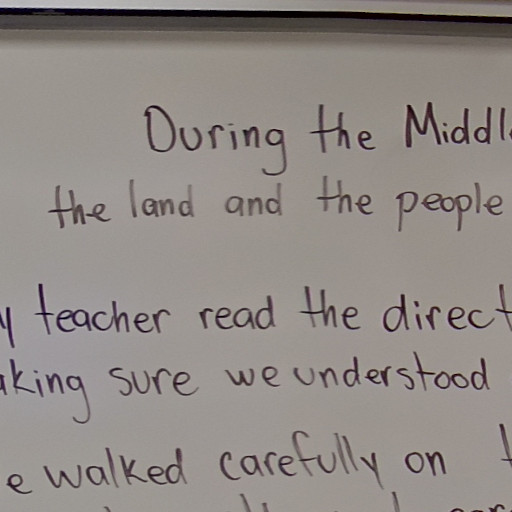 During the Middl
the land and the people
y teacher read the direct
aking sure we understood
e walked carefully on t